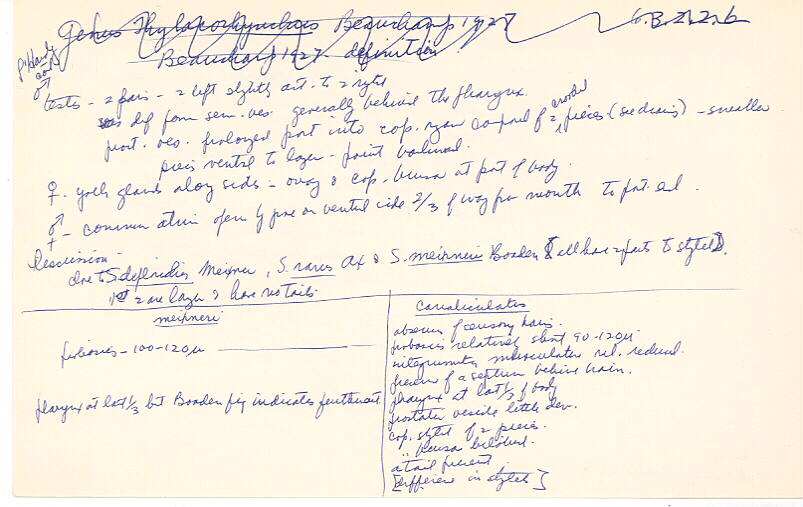 Genus Thylacorhynchus Beauchamp 1927
6.B.2.2.6
Beauchamp 1927. definition
♂
testes - 2 pairs - 2 left slightly ant. to 2 right
def form sem. ves. generally behind the pharynx.
prost. ves. prolonged part into cop. organ composed of 2 crooked pieces (see drawing) - smaller
piece ventral to larger - point backward.
♀. yolk glands along sides - ovary & cop. bursa at part of body.
- common atrium opens by pore on ventral side 2/3 of way from mouth to post. end.
Discussion -
close to S. deplendis Meixner, S. rarus Ax & S. meixneri Boaden all have 2 parts to stylet.
1st 2 are larger & have no tails.
meixneri
proboscis - 100-120µ
pharynx at last 1/3 but Boaden fig indicates further ant
Canaliculatus
absence of sensory hairs.
proboscis relatively short 90-120µ
integumentary musculature rel. reduced.
presence of a septum behind brain.
pharynx at last 1/3 of body
prostatic vesicle little dev.
cop. stylet of 2 pieces.
" bursa bilobed.
a tail present.
[difference in stylets]